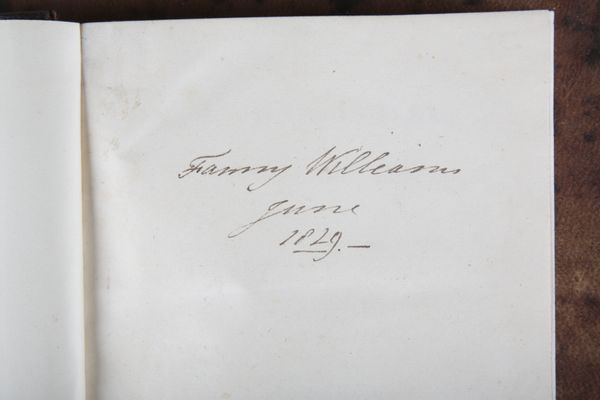 Fanny Williams
June
1829.—